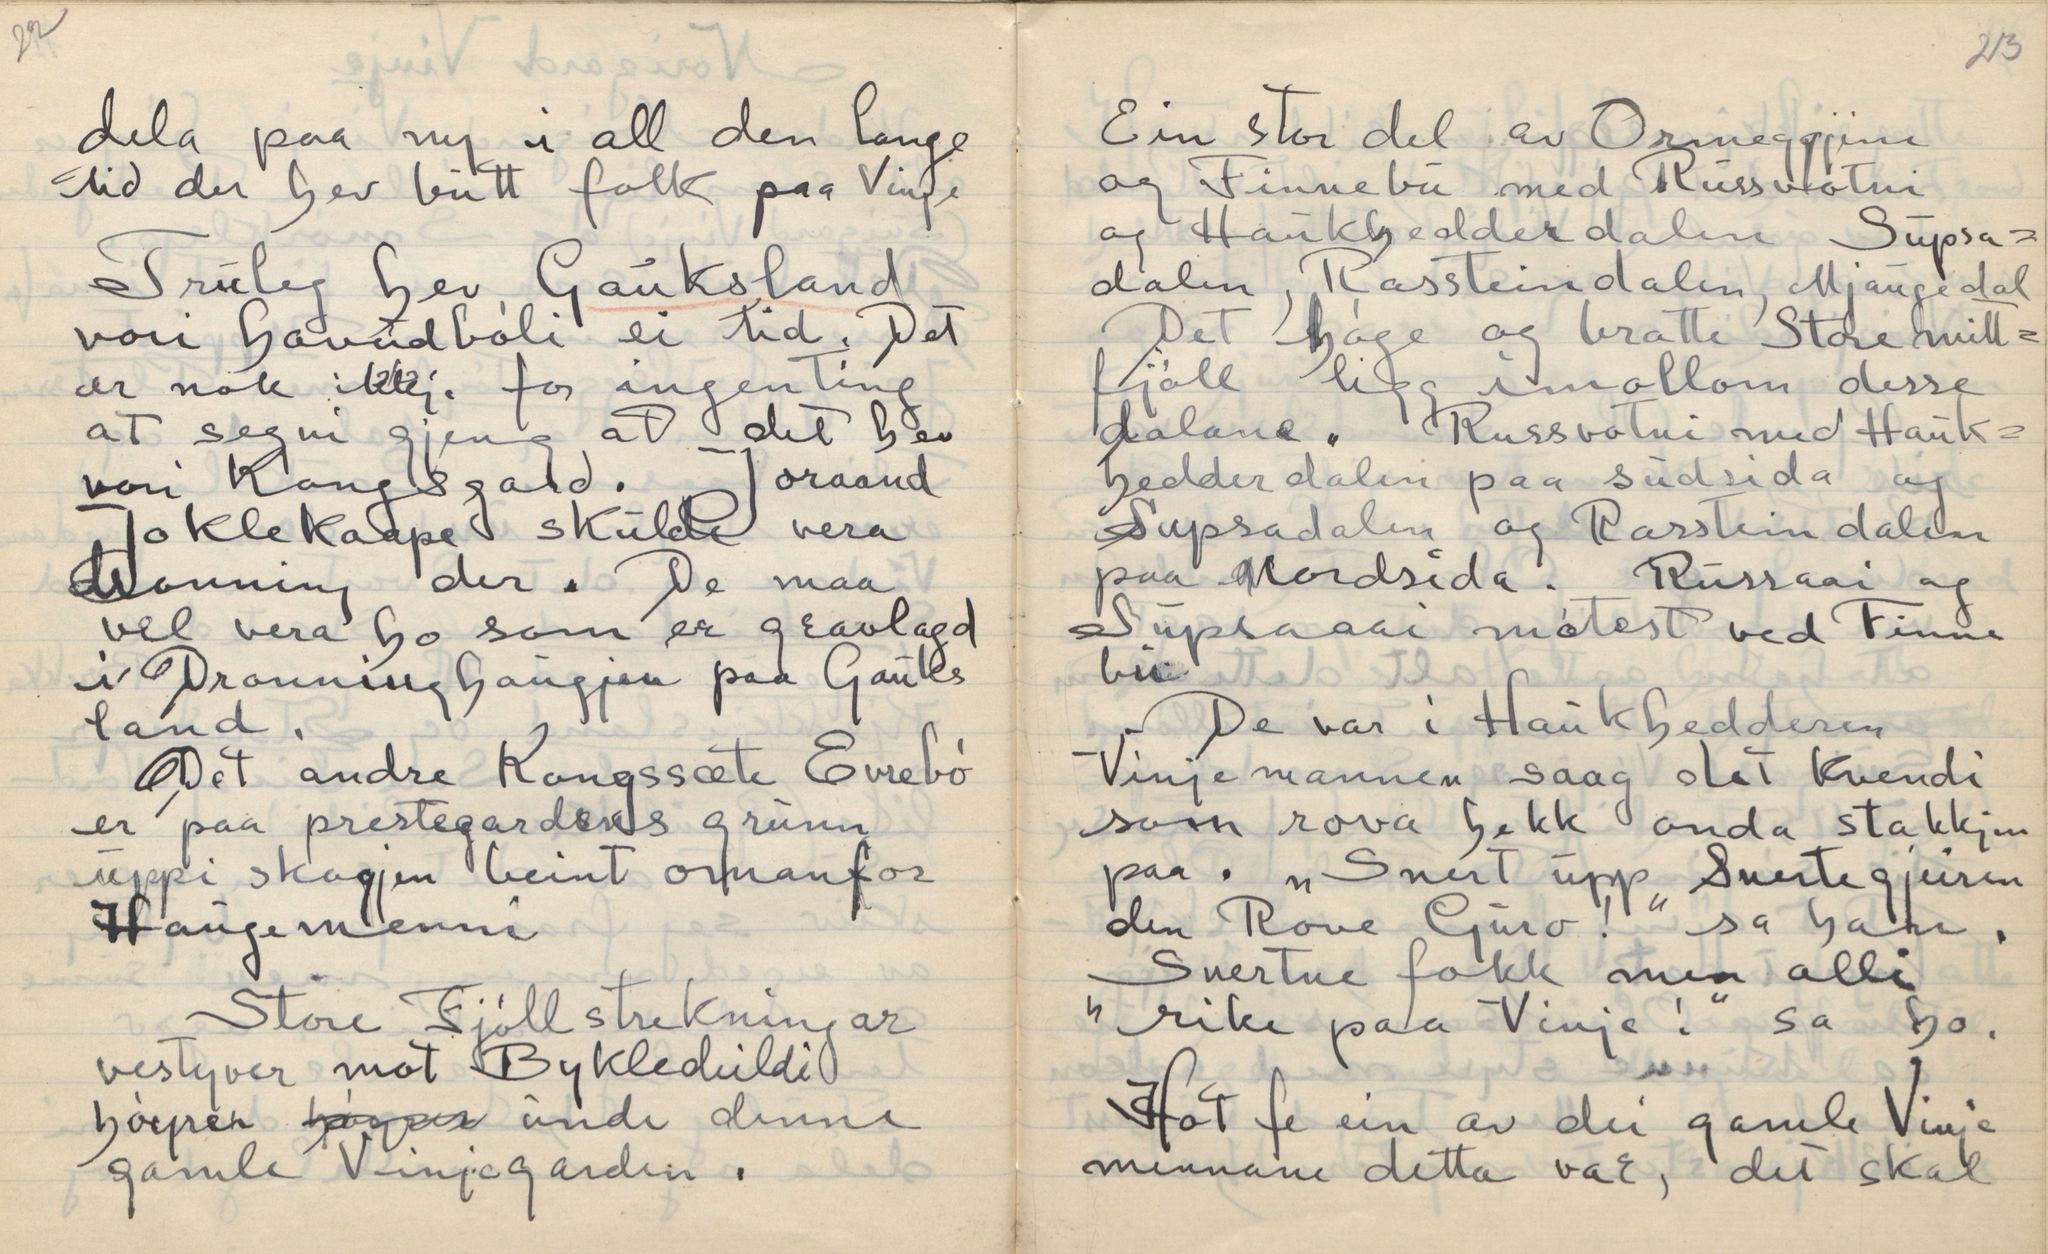 212
dela paa ny i all den lange
tid der hev butt folk paa Vinje
Truleg hev Gauksland
vori havudbóli ei tid. Det
ær nok ikkj. for ingenting
at segni gjeng at det hev
vori Kongsgard. Joraand
Joklekaape skulde vera
dronning der. De maa
vel vera ho som er gravlagd
i Dronninghaugjen paa Gauks
land.
Det andre Kongssæte Evrebó
er paa prestegardens grunn
uppi skogjen beint omanfor
Haugemenni
Store Fjóllstrekningar
vestyver mot Bykleduldi
hóyrer hóyrer unde denne
gamle Vinjegarden.
213
Ein stor del av Ormeggjine
og Finnebu med Russvotni
og Haukhedderdalen Supsa=
dalen, Rassteindalen, Mjaugedal
Det hóge og bratte Store mitt=
fjóll ligg imollom desse
dalane. Russvotni med Hauk=
hedderdalen paa sudsida og
Supsadalen og Rassteindalen
paa Nordsida. Russaai og
Supsaaai mótest ved Finne
bu
De var i Haukhedderen
Vinjemannen saag det Kvendi
som rova hekk onda stakkjen
paa. "Snert upp Snertegjeiren
den Rove Guro!" sa han.
Snertne fokk men alli
"rike paa Vinje!" sa ho.
Hot fe ein av dei gamle Vinje
mennane detta var, det skal